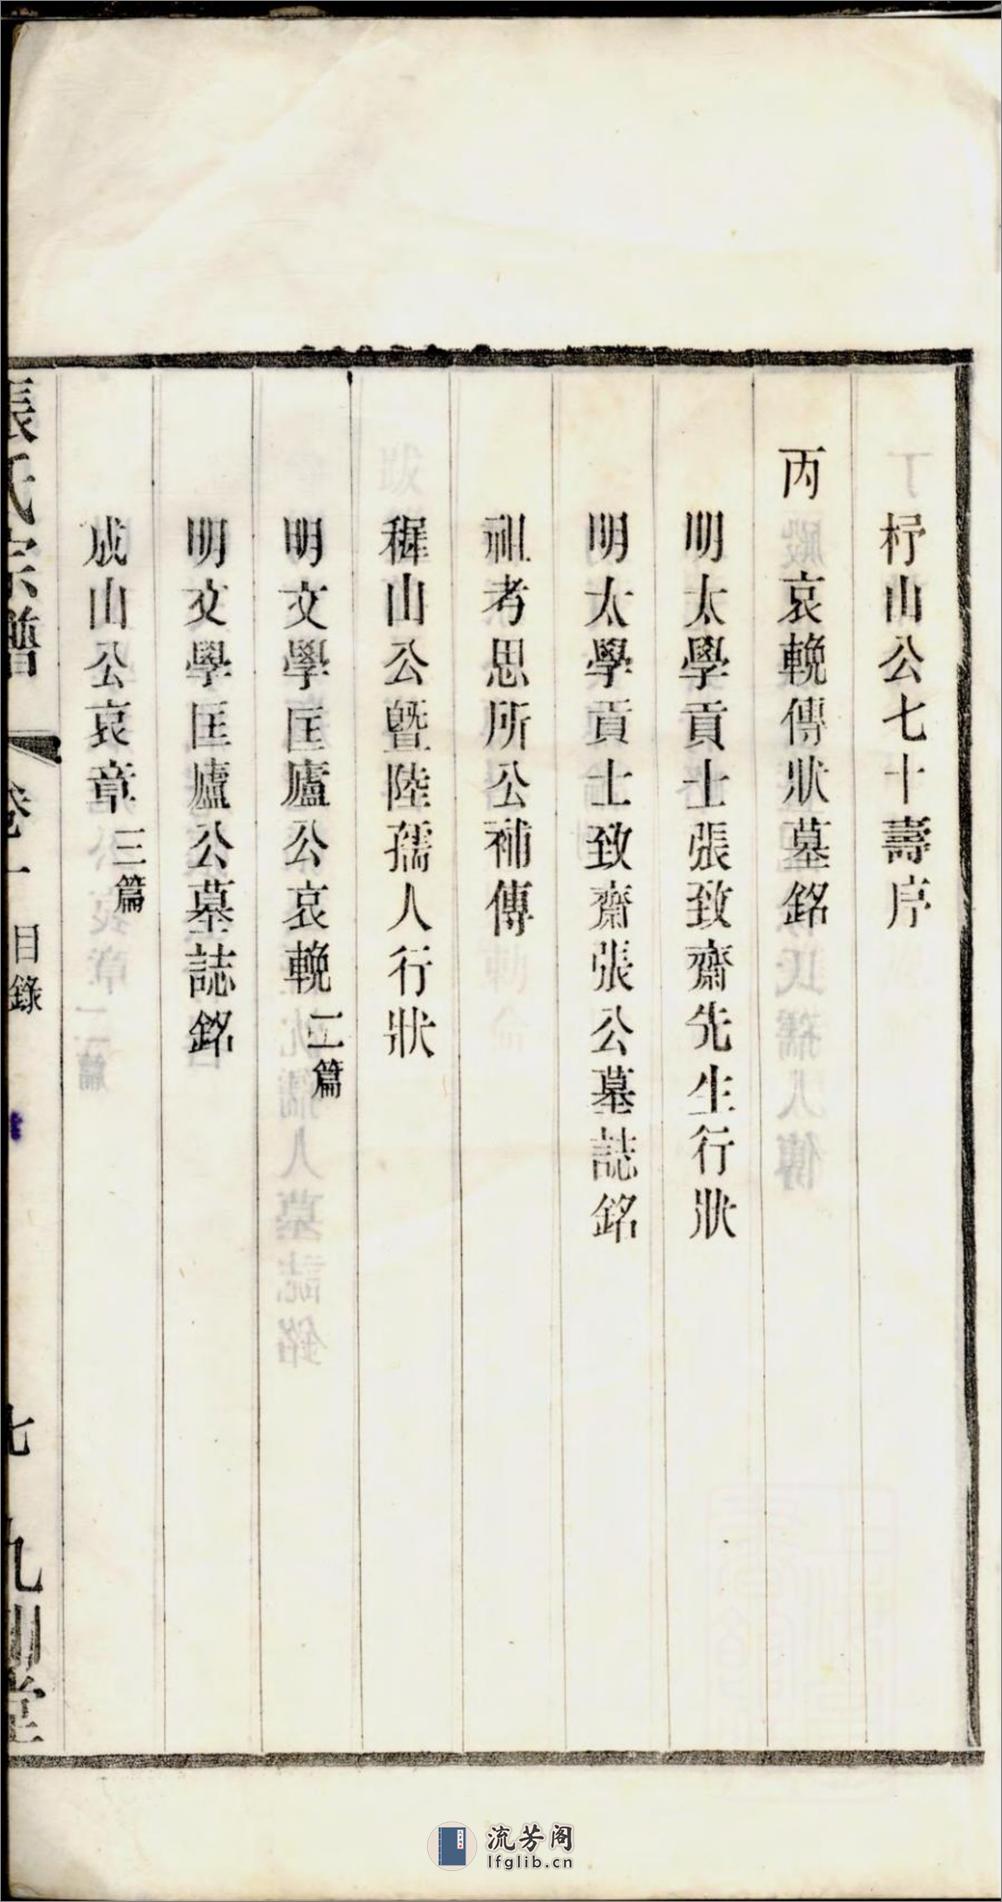 杼山公七十壽序
丙 哀輓傳狀墓銘
明太學貢士張致齋先生行狀
明太學貢士致齋張公墓誌銘
祖考思所公補傳
穉山公曁陸孺人行狀
明文學匡廬公哀輓二篇
明文學匡廬公墓誌銘
成山公哀章三篇
張氏宗譜 卷一 目錄 七
流芳阁
lfglib.cn